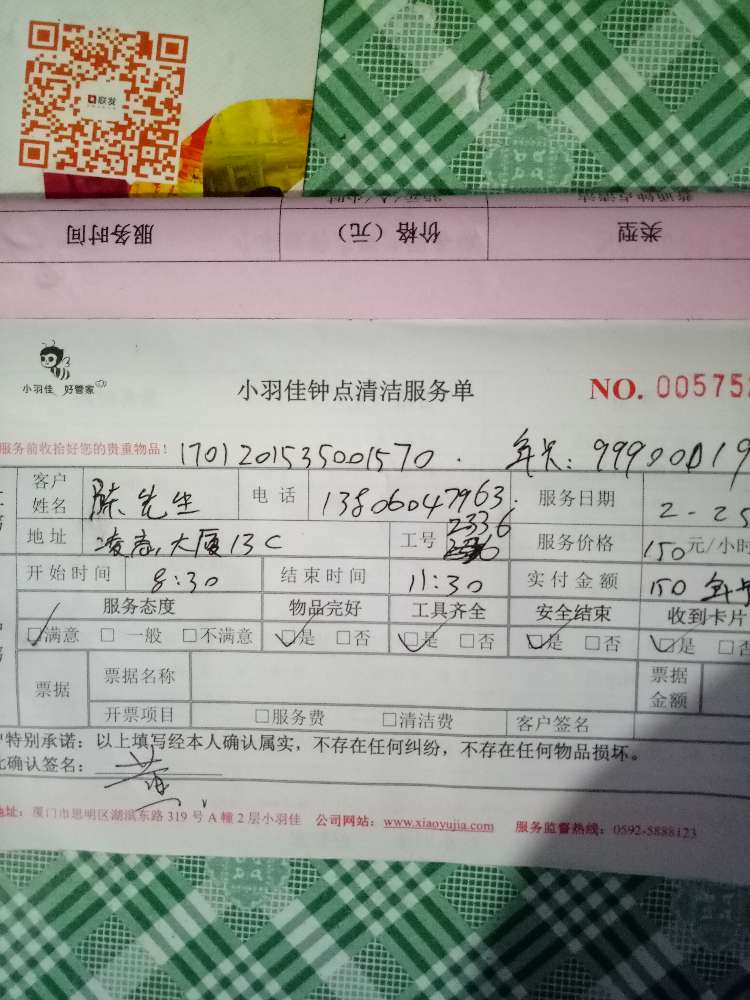 联发
类型 价格（元） 服务时间
小羽佳 好管家
小羽佳钟点清洁服务单
NO. 00575
服务前收拾好您的贵重物品！ 1701201535001570. 年卡: 99900019
客户姓名 陈先生 电话 13806047963. 服务日期 2-25
地址 凌高大厦13C 工号 2336 服务价格 150元/小时
开始时间 8:30 结束时间 11:30 实付金额 150 年卡
服务态度 物品完好 工具齐全 安全结束 收到卡片
☑满意 □一般 □不满意 ☑是 □否 ☑是 □否 ☑是 □否 ☑是 □否
票据 票据名称 票据金额
开票项目 □服务费 □清洁费 客户签名
户特别承诺：以上填写经本人确认属实，不存在任何纠纷，不存在任何物品损坏。
此确认签名：
地址：厦门市思明区湖滨东路319号A幢2层小羽佳 公司网站：www.xiaoyujia.com 服务监督热线：0592-5888123